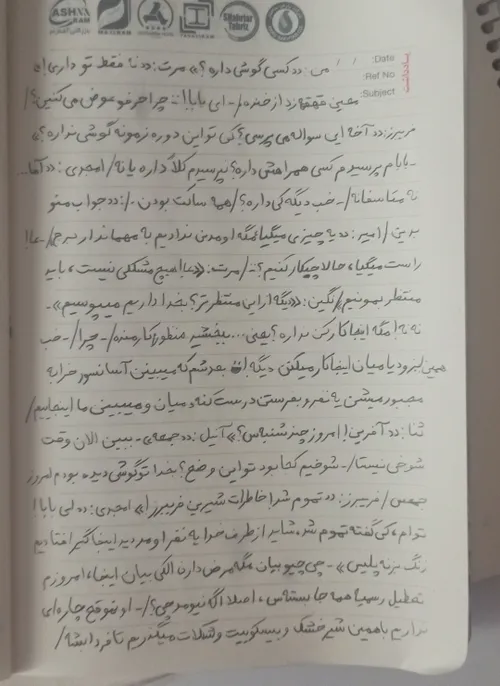 ASHX
RAM
MAZZRAM
Shahriar
Tabriz
Date: / /
Ref No
Subject:
یادداشت
من: «کسی گوشی داره؟» مرت: «نه فقط تو داری!»
معین قهقهه زد از خنده/- ای بابا!:: چرا حرفو عوض می کنین؟/
فریبرز: «آخه این سواله می پرسی؟ کی تو این دوره زمونه گوشی نداره؟»
- بابام پرسیدم کسی همراهش داره؟ نپرسیدم کلاً داره یا نه/ امجدی: «آقا...
نه متاسفانه/- خب دیگه کی داره؟/ همه ساکت بودن -/: «جواب منو
بدین/ امیر: «یه چیزی میگیا مگه اومدن ندادیم به مهماندار
راست میگیا، حالا چیکار کنیم؟::/ مرت: «عا! هیچ مشکلی نیست، باید
منتظر بمونیم/ نگین: «دیگه از این منتظرتر؟ بخدا داریم میپوسیم»-
نه نه! مگه اینجا کارکن نداره؟ یعنی... ببخشید منظورم کارمنده/- چرا/- خب
همین! بزودیا میان اینجا کار میکنن دیگه! بعدشم که میبینن آسانسور خرابه
مجبور میشن یه نفرو بفرستن درست کنه و میان و میبینن ما اینجاییم/
ثنا: «آفرین!! امروز چند شنباس؟» آنیل: «جمعه»- ببین الان وقت
شوخی نیستا/- شوخیم کجا بود تو این وضع؟ بخدا تو گوشی دیده بودم امروز
جمعس/ فریبرز: «تموم شد! خاطرات شیرین فریبرز!» امجدی: «ای بابا!
توام، کی گفته تموم شد. شاید از طرف خدا یه نفر اومد دید اینجا گیر افتادیم
زنگ بزنه پلیس»- چی چیو بیان مگه مرض دارن الکی بیان اینجا، امروزم
تعطیل رسمیا همه جا بستس، اصلا اگه نیومد چی؟/- اوموقع چاره ای
نداریم با همین شیر خشک و بیسکوییت و شکلات میگذریم تا فردا شه/